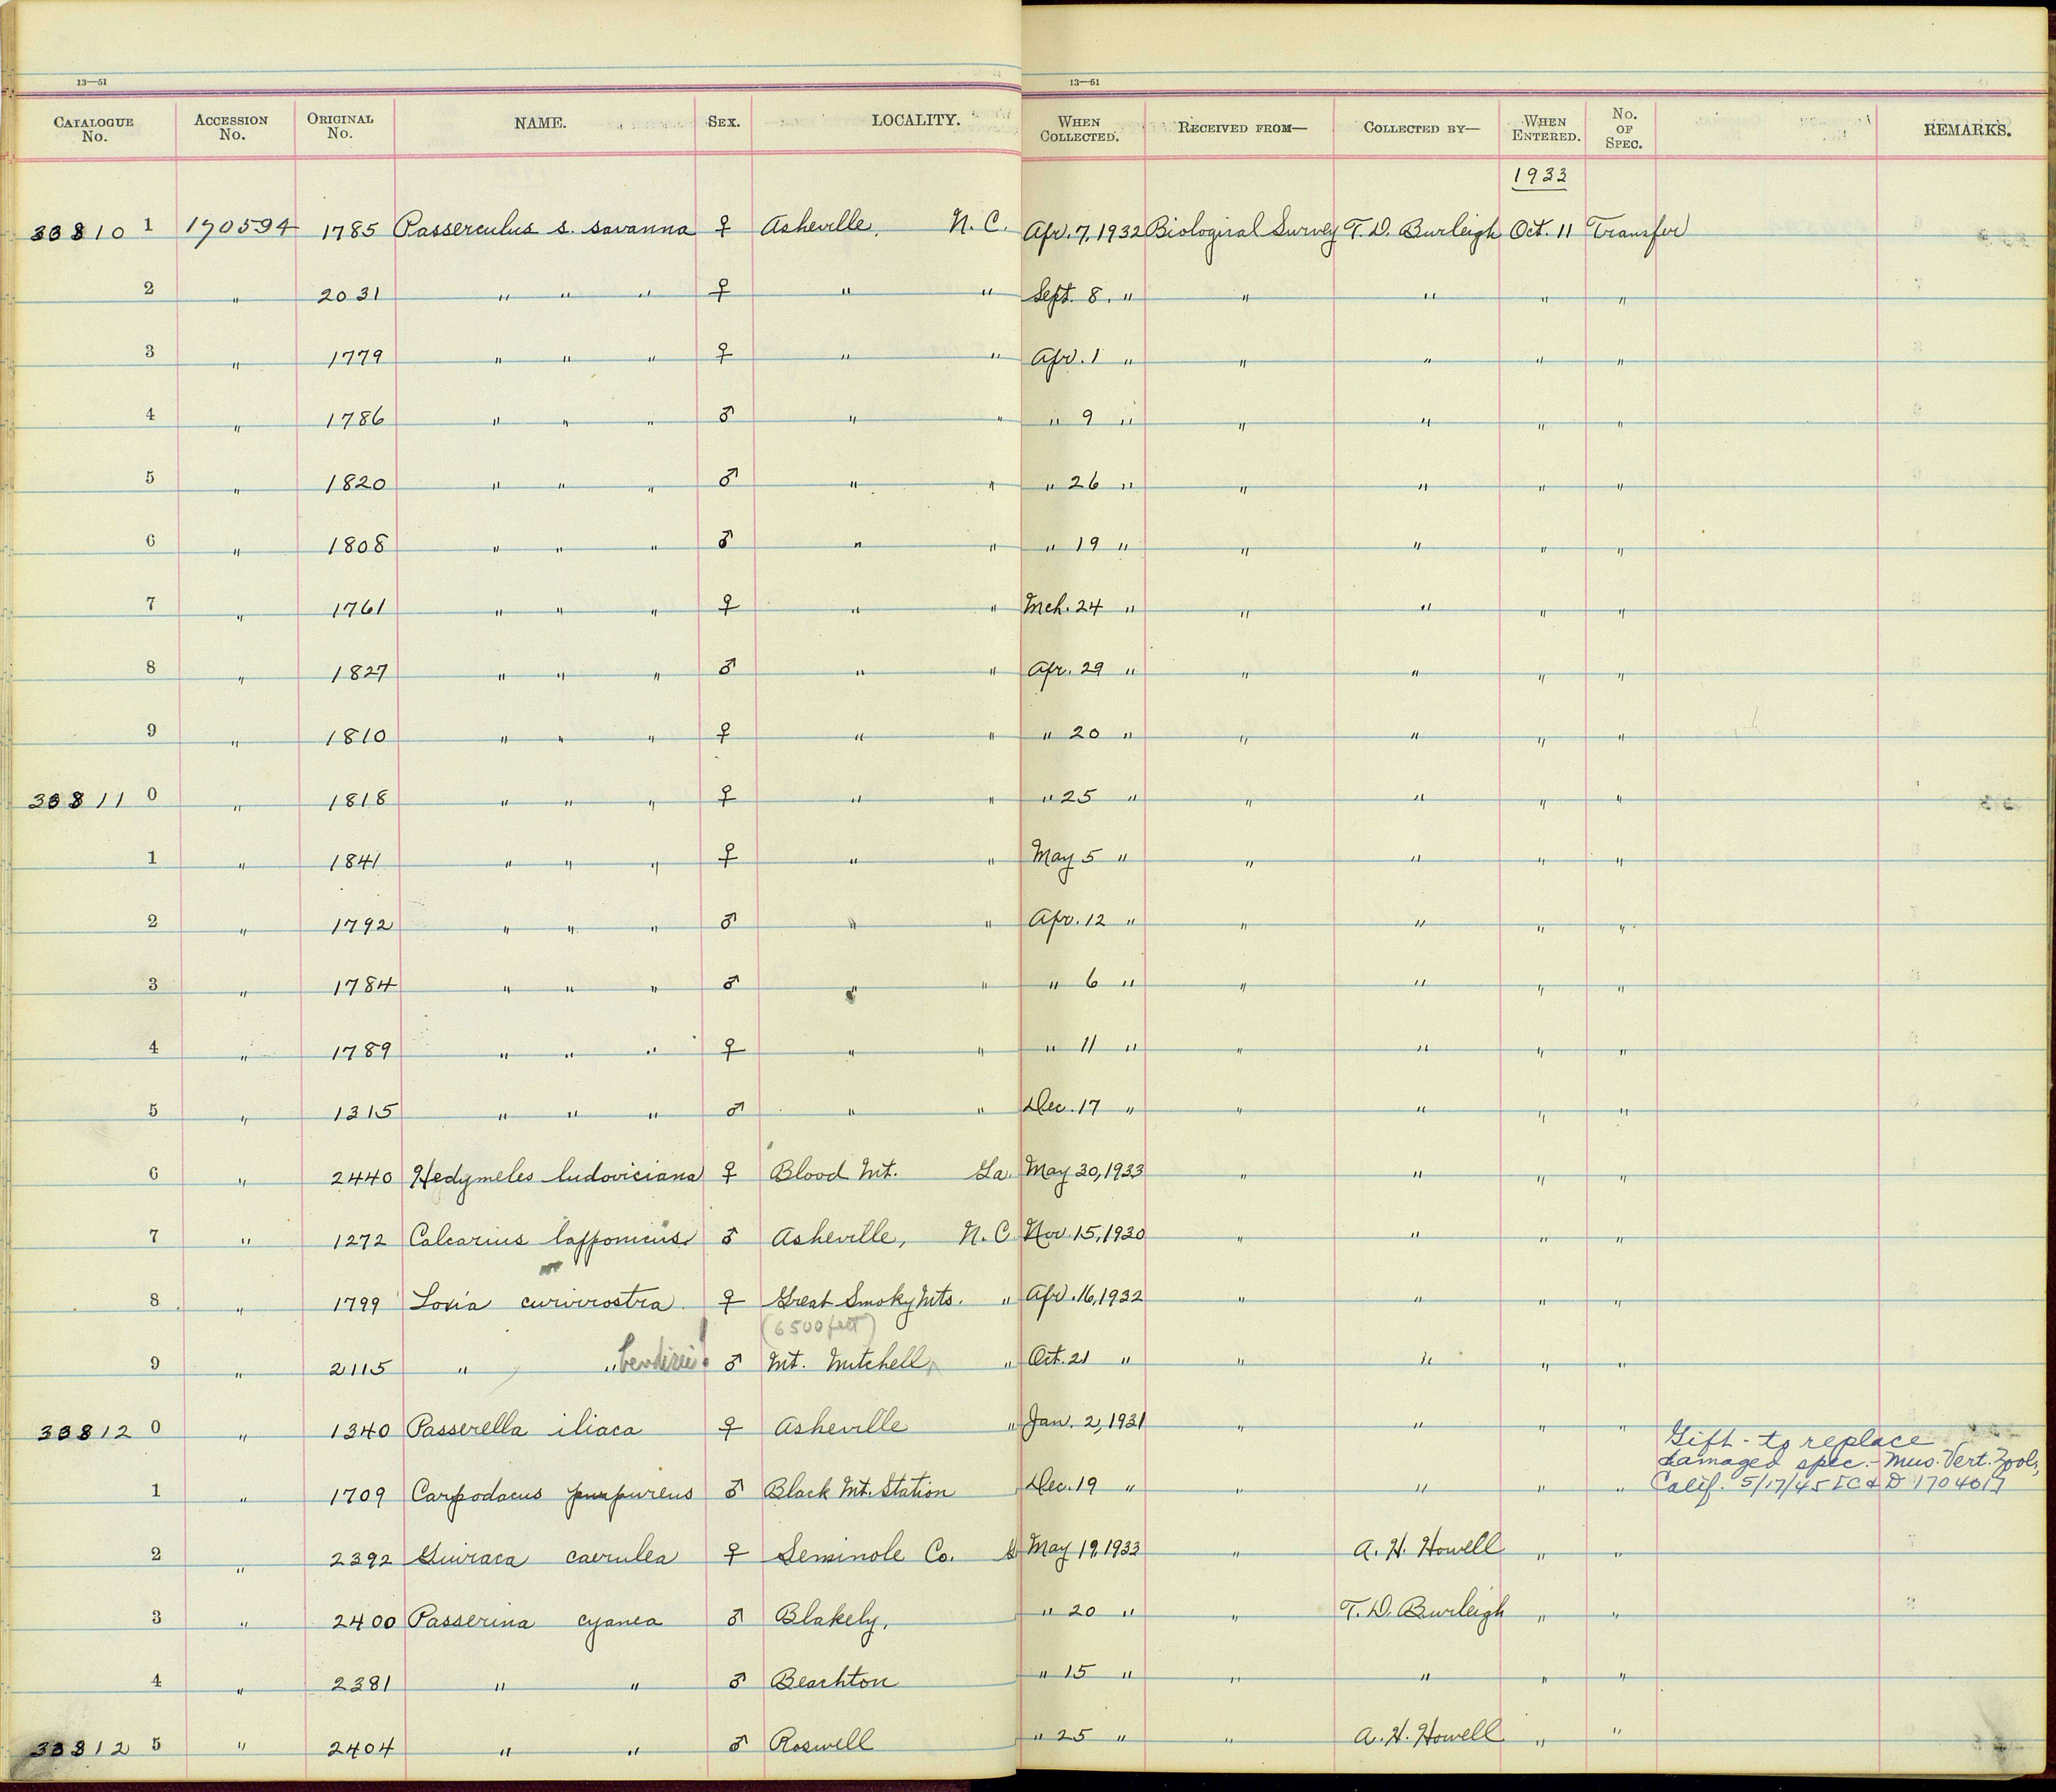 13—51 13—51
CATALOGUE No. ACCESSION No. ORIGINAL No. NAME. SEX. LOCALITY. WHEN COLLECTED. RECEIVED FROM— COLLECTED BY— WHEN ENTERED. No. OF SPEC. REMARKS.
1933
33810 1 170594 1785 Passerculus s. savanna ♀ Asheville, N. C. Apr. 7, 1932 Biological Survey T. D. Burleigh Oct. 11 Transfer
2 " 2031 " " " ♀ " " Sept. 8. " " " " "
3 " 1779 " " " ♀ " " Apr. 1 " " " " "
4 " 1786 " " " ♂ " " " 9 " " " " "
5 " 1820 " " " ♂ " " " 26 " " " " "
6 " 1808 " " " ♂ " " " 19 " " " " "
7 " 1761 " " " ♀ " " Mch. 24 " " " " "
8 " 1827 " " " ♂ " " Apr. 29 " " " " "
9 " 1810 " " " ♀ " " " 20 " " " " "
33811 0 " 1818 " " " ♀ " " " 25 " " " " "
1 " 1841 " " " ♀ " " May 5 " " " " "
2 " 1792 " " " ♂ " " Apr. 12 " " " " "
3 " 1784 " " " ♂ " " " 6 " " " " "
4 " 1789 " " " ♀ " " " 11 " " " " "
5 " 1315 " " " ♂ " " Dec. 17 " " " " "
6 " 2440 Hedymeles ludoviciana ♀ Blood Mt. Ga. May 30, 1933 " " " "
7 " 1272 Calcarius lapponicus ♂ Asheville, N. C. Nov. 15, 1930 " " " "
8 " 1799 Loxia curvirostra ♀ Great Smoky Mts. " Apr. 16, 1932 " " " "
(6500 feet)
9 " 2115 " " bendirei! ♂ Mt. Mitchell " Oct. 21 " " " " "
33812 0 " 1340 Passerella iliaca ♀ Asheville " Jan. 2, 1931 " " " "
Gift - to replace
damaged spec. - Mus. Vert. Zool.,
1 " 1709 Carpodacus purpureus ♂ Black Mt. Station Dec. 19 " " " " " Calif. 5/17/45 IC & D 170401
2 " 2392 Guiraca caerulea ♀ Seminole Co. May 19, 1933 " A. H. Howell " "
3 " 2400 Passerina cyanea ♂ Blakely, " 20 " " T. D. Burleigh " "
4 " 2381 " " ♂ Beachton " 15 " " " " "
33812 5 " 2404 " " ♂ Roswell " 25 " " A. H. Howell " "